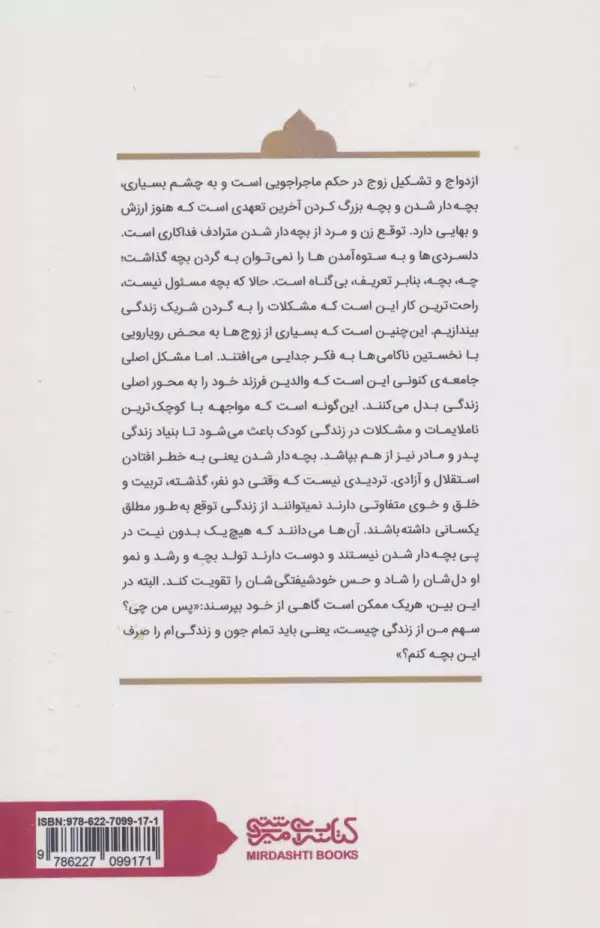 ازدواج و تشکیل زوج در حکم ماجراجویی است و به چشم بسیاری،
بچه‌دار شدن و بچه بزرگ کردن آخرین تعهدی است که هنوز ارزش
و بهایی دارد. توقع زن و مرد از بچه‌دار شدن مترادف فداکاری است.
دلسردی‌ها و به ستوه‌آمدن ها را نمی‌توان به گردن بچه گذاشت؛
چه، بچه، بنابر تعریف، بی‌گناه است. حالا که بچه مسئول نیست،
راحت‌ترین کار این است که مشکلات را به گردن شریک زندگی
بیندازیم. این‌چنین است که بسیاری از زوج‌ها به محض رویارویی
با نخستین ناکامی‌ها به فکر جدایی می‌افتند. اما مشکل اصلی
جامعه‌ی کنونی این است که والدین فرزند خود را به محور اصلی
زندگی بدل می‌کنند. این‌گونه است که مواجهه با کوچک‌ترین
ناملایمات و مشکلات در زندگی کودک باعث می‌شود تا بنیاد زندگی
پدر و مادر نیز از هم بپاشد. بچه‌دار شدن یعنی به خطر افتادن
استقلال و آزادی. تردیدی نیست که وقتی دو نفر، گذشته، تربیت و
خلق و خوی متفاوتی دارند نمیتوانند از زندگی توقع به‌طور مطلق
یکسانی داشته‌باشند. آن‌ها می‌دانند که هیچ‌یک بدون نیت در
پی بچه‌دار شدن نیستند و دوست دارند تولد بچه و رشد و نمو
او دل‌شان را شاد و حس خودشیفتگی‌شان را تقویت کند. البته در
این بین، هریک ممکن است گاهی از خود بپرسند:«پس من چی؟
سهم من از زندگی چیست، یعنی باید تمام جون و زندگی‌ام را صرف
این بچه کنم؟»
ISBN:978-622-7099-17-1
9 786227 099171
کتابسرای میردشتی
MIRDASHTI BOOKS